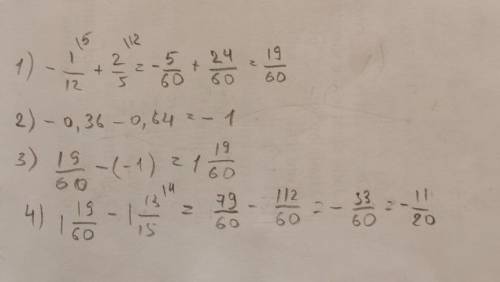 1) - 1/12 \5 + 2/5 \12 = - 5/60 + 24/60 = 19/60
2) - 0,36 - 0,64 = - 1
3) 19/60 - (-1) = 1 19/60
4) 1 19/60 - 1 13/15 \4 = 79/60 - 112/60 = - 33/60 = - 11/20